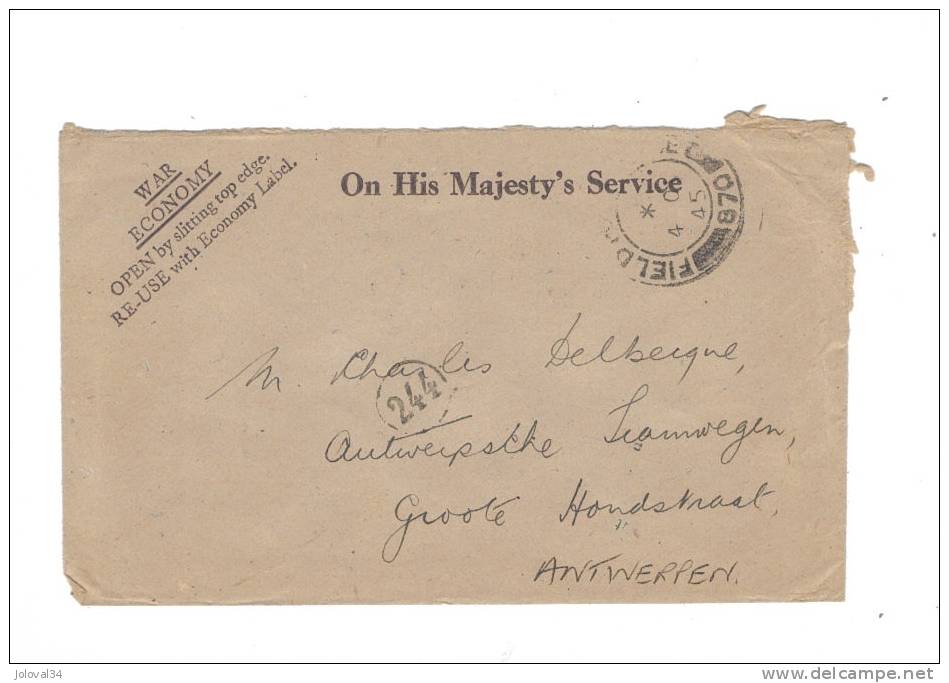 WAR
ECONOMY
OPEN by slitting top edge.
RE-USE with Economy Label.
On His Majesty's Service
FIELD
870
* 4 OC 45
244
M. Charles Delbecque,
Antwerpsche Tramwegen,
Groote Hondstraat,
ANTWERPEN.
joloval34
www.delcampe.net